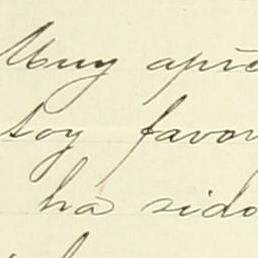 Muy apre
soy favor
ha sido